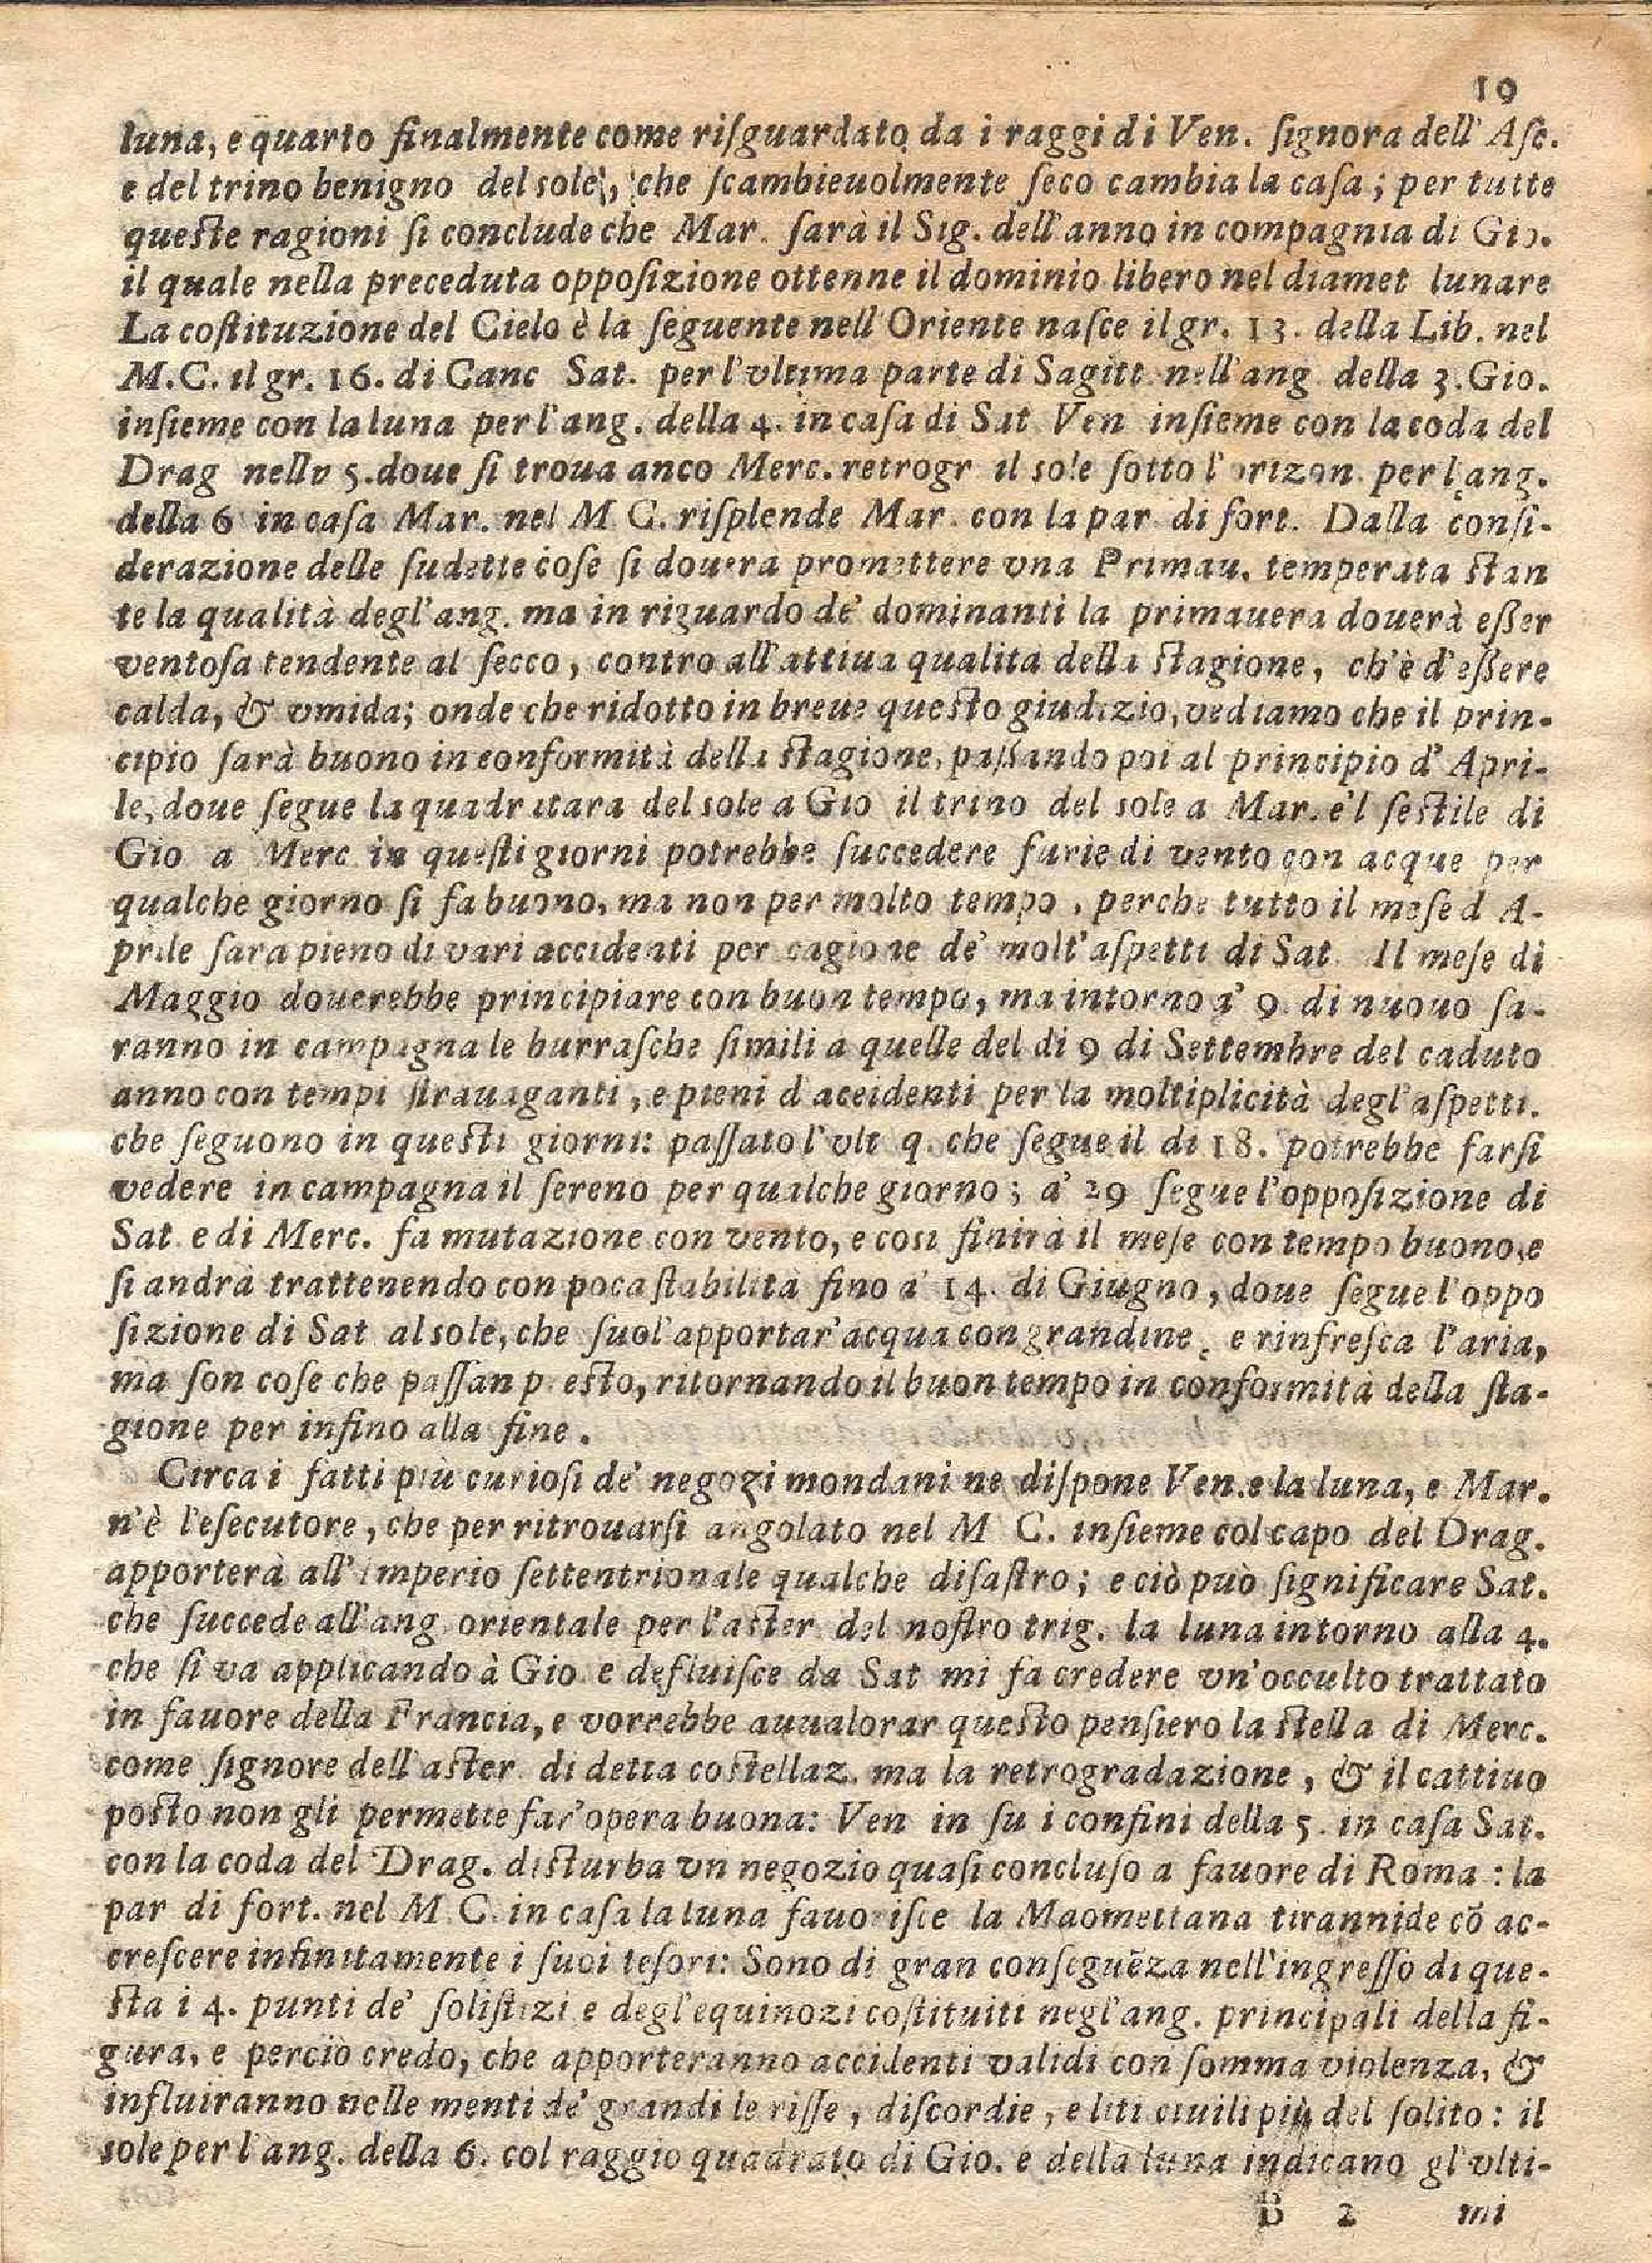 19
luna, e quarto finalmente come riſguardato da i raggi di Ven. ſignora dell' Aſc.
e del trino benigno del sole, che ſcambieuolmente ſeco cambia la caſa; per tutte
queſte ragioni ſi conclude che Mar. ſarà il Sig. dell'anno in compagnia di Gio.
il quale nella preceduta oppoſizione ottenne il dominio libero nel diamet lunare
La coſtituzione del Cielo è la ſeguente nell'Oriente naſce il gr. 13. della Lib. nel
M.C. il gr. 16. di Canc Sat. per l'vltima parte di Sagitt. nell'ang della 3. Gio.
inſieme con la luna per l'ang. della 4. in caſa di Sat Ven inſieme con la coda del
Drag nella 5. doue ſi troua anco Merc. retrogr il sole ſotto l'orizon. per l'ang.
della 6 in caſa Mar. nel M C. riſplende Mar. con la par di fort. Dalla conſi-
derazione delle ſudette coſe ſi douera promettere vna Primau. temperata ſtan
te la qualità degl'ang. ma in riguardo de' dominanti la primauera douerà eſſer
ventoſa tendente al ſecco, contro all'attiua qualita della ſtagione, ch'è d'eſſere
calda, & vmida; onde che ridotto in breue queſto giudizio, vediamo che il prin-
cipio ſarà buono in conformità della ſtagione, paſſando poi al principio d' Apri-
le, doue ſegue la quadratara del sole a Gio il trino del sole a Mar. e'l ſeſtile di
Gio a Merc in queſti giorni potrebbe ſuccedere furie di vento con acque per
qualche giorno ſi fa buono, ma non per molto tempo, perche tutto il meſe d A-
prile ſara pieno di vari accidenti per cagione de' molt'aſpetti di Sat. Il meſe di
Maggio douerebbe principiare con buon tempo, ma intorno a' 9. di nuouo ſa-
ranno in campagna le burraſche ſimili a quelle del di 9 di Settembre del caduto
anno con tempi ſtrauaganti, e pieni d'accidenti per la moltiplicità degl'aſpetti.
che ſeguono in queſti giorni: paſſato l'vlt q. che ſegue il di 18. potrebbe farſi
vedere in campagna il ſereno per qualche giorno; a' 29 ſegue l'oppoſizione di
Sat. e di Merc. fa mutazione con vento, e così finirà il meſe con tempo buono, e
ſi andrà trattenendo con poca ſtabilità fino a' 14. di Giugno, doue ſegue l'oppo
ſizione di Sat al sole, che ſuol'apportar'acqua con grandine, e rinfreſca l'aria,
ma ſon coſe che paſſan preſto, ritornando il buon tempo in conformità della ſta-
gione per inſino alla fine.
Circa i fatti più curioſi de' negozi mondani ne diſpone Ven. e la luna, e Mar.
n'è l'eſecutore, che per ritrouarſi angolato nel M C. inſieme col capo del Drag.
apporterà all'imperio ſettentrionale qualche diſaſtro; e ciò può ſignificare Sat.
che ſuccede all'ang. orientale per l'aſter. del noſtro trig. la luna intorno alla 4.
che ſi va applicando à Gio e defluiſce da Sat mi fa credere vn'occulto trattato
in fauore della Francia, e vorrebbe auualorar queſto penſiero la ſtella di Merc.
come ſignore dell'aſter. di detta coſtellaz. ma la retrogradazione, & il cattiuo
poſto non gli permette far'opera buona: Ven in ſu i confini della 5. in caſa Sat.
con la coda del Drag. diſturba vn negozio quaſi concluſo a fauore di Roma: la
par di fort. nel M.C. in caſa la luna fauoriſce la Maomettana tirannide cō ac-
creſcere infinitamente i ſuoi teſori: Sono di gran conſeguēza nell'ingreſſo di que-
ſta i 4. punti de' ſoliſtizi e degl'equinozi coſtituiti negl'ang. principali della fi-
gura, e perciò credo, che apporteranno accidenti validi con ſomma violenza, &
influiranno nelle menti de' grandi le riſſe, diſcordie, e liti ciuili più del ſolito: il
sole per l'ang. della 6. col raggio quadrato di Gio. e della luna indicano gl'vlti-
B 2 mi